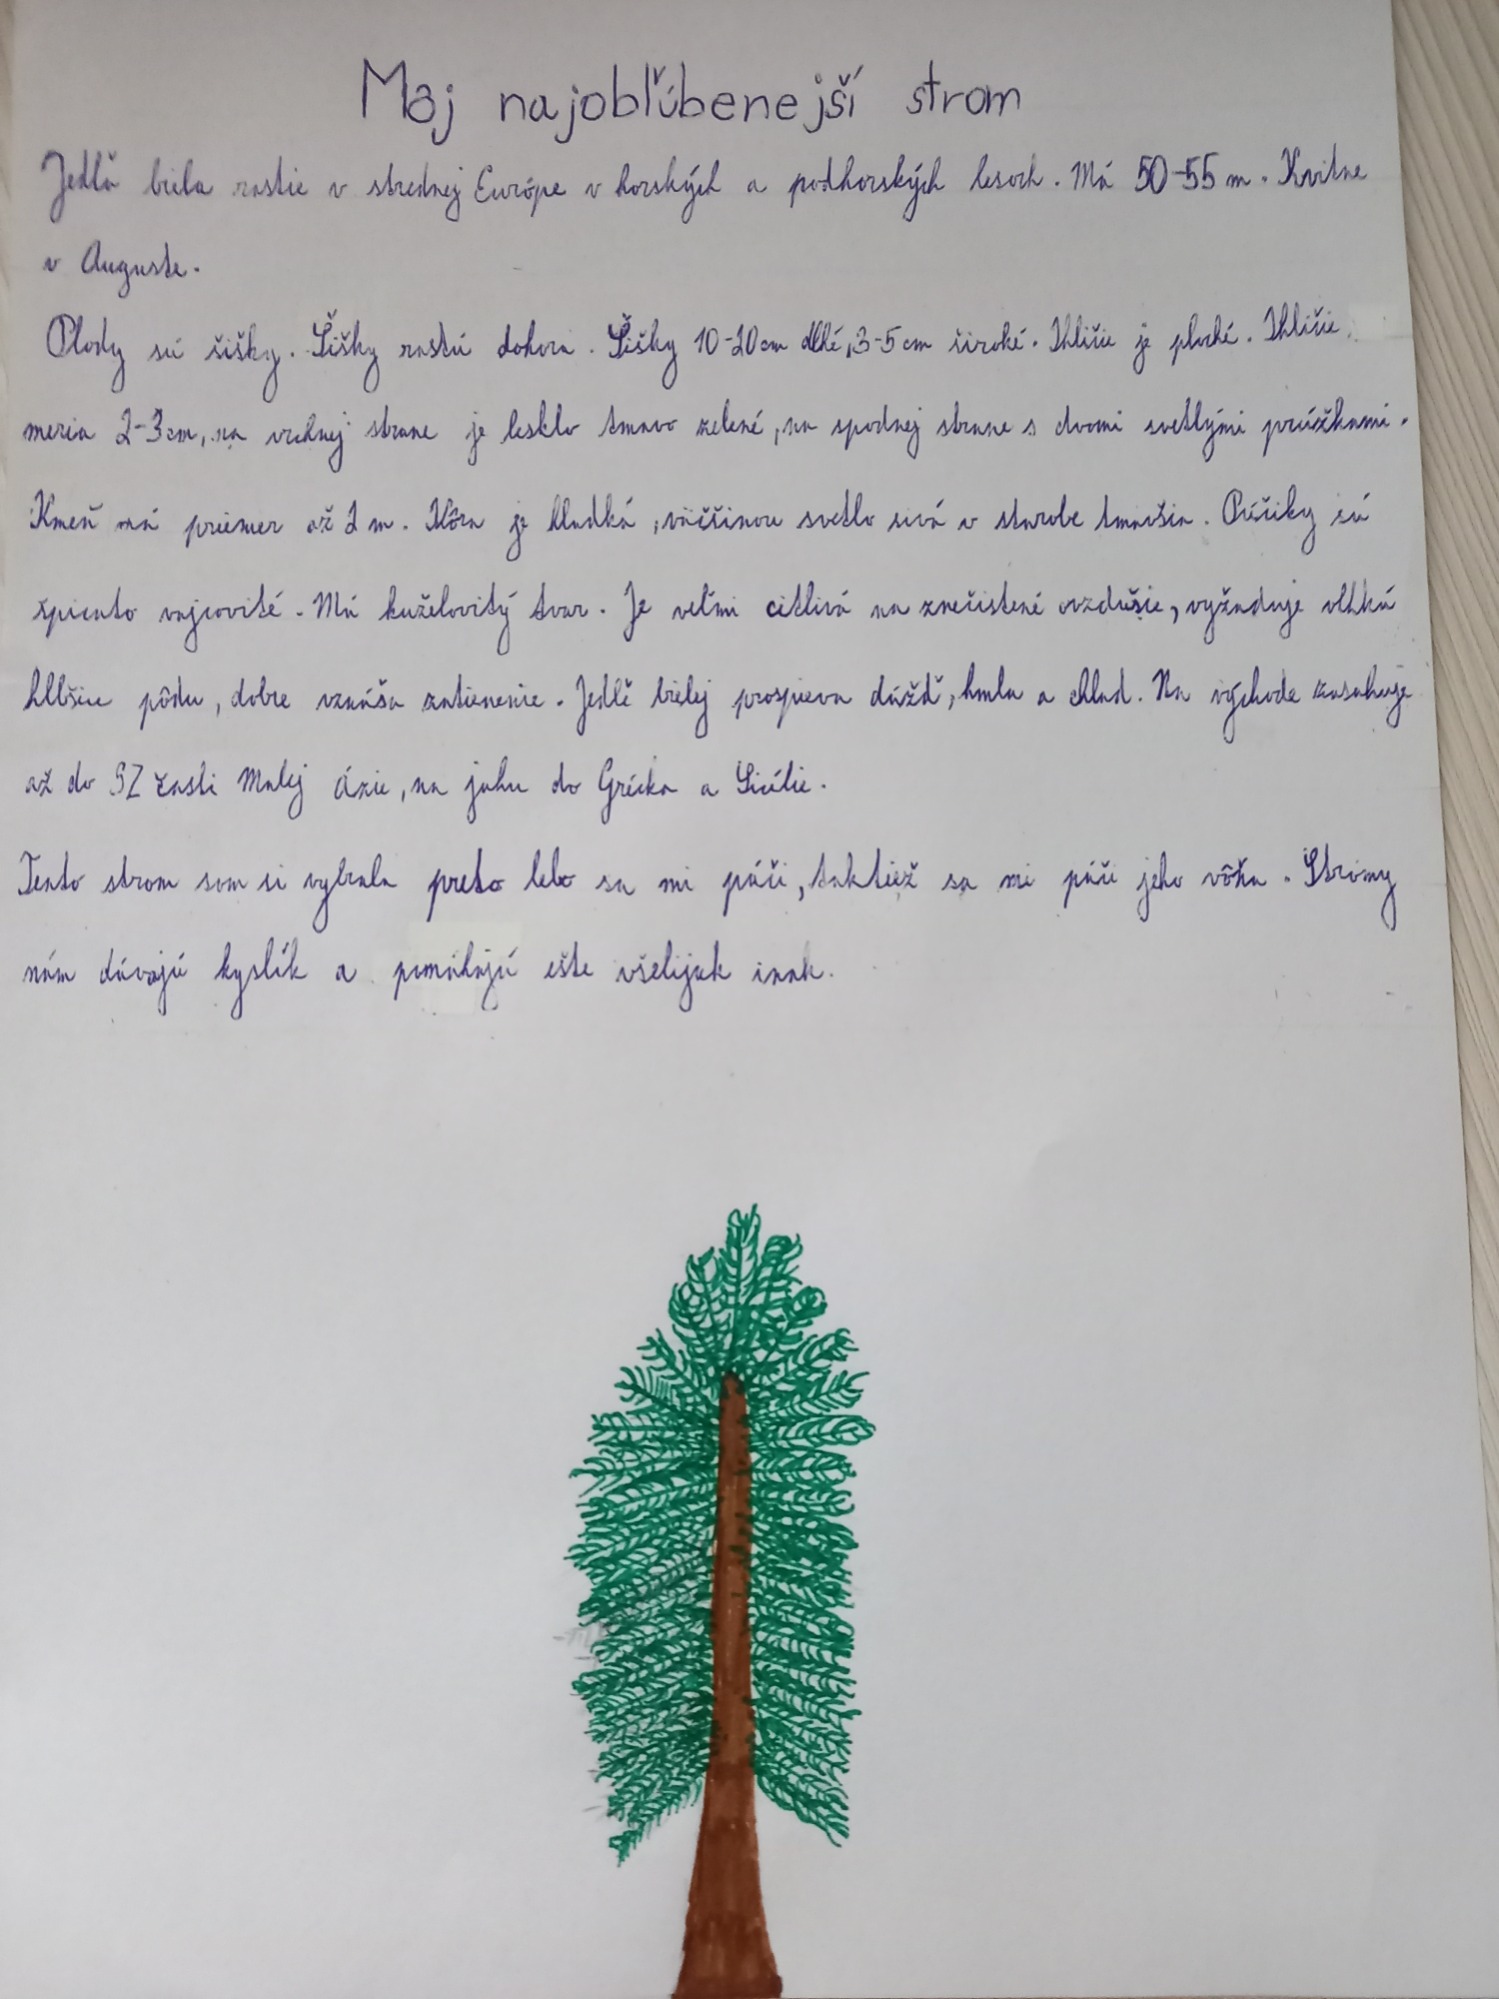 Môj najobľúbenejší strom
Jedľa biela rastie v strednej Európe v horských a podhorských lesoch. Má 50-55 m. Kvitne
v Auguste.
Plody sú šišky. Šišky rastú dohora. Šišky 10-20cm dlhé, 3-5 cm široké. Ihličie je ploché. Ihličie
meria 2-3cm, na vrchnej strane je lesklo tmavo zelené, na spodnej strane s dvomi svetlými prúžkami.
Kmeň má priemer až 2 m. Kôra je hladká, väčšinou svetlo sivá v starobe tmavšia. Púčiky sú
špicato vajcovité. Má kužeľovitý tvar. Je veľmi citlivá na znečistené ovzdušie, vyžaduje vlhkú
hlbšiu pôdu, dobre vznáša zatienenie. Jedli bielej prospieva dážď, hmla a chlad. Na východe zasahuje
až do SZ časti Malej Ázie, na juhu do Grécka a Sicílie.
Tento strom som si vybrala preto lebo sa mi páči, taktiež sa mi páči jeho vôňa. Stromy
nám dávajú kyslík a pomáhajú ešte všelijak inak.